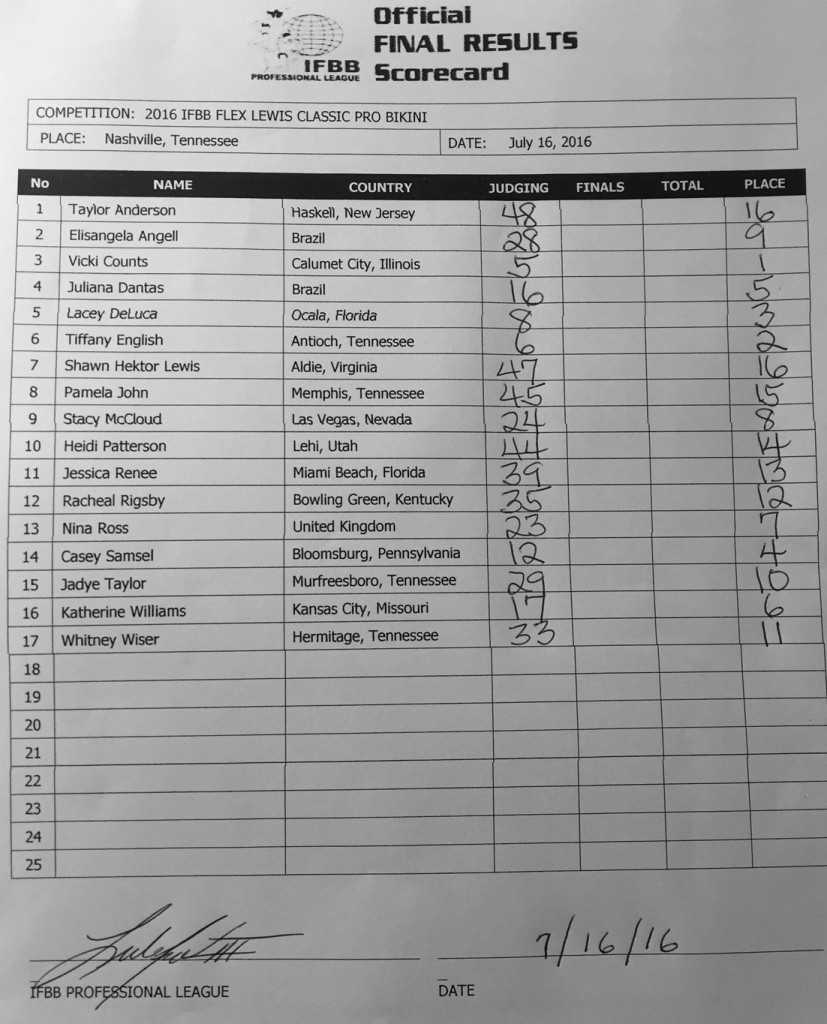 Official
FINAL RESULTS
Scorecard
IFBB
PROFESSIONAL LEAGUE
COMPETITION: 2016 IFBB FLEX LEWIS CLASSIC PRO BIKINI
PLACE: Nashville, Tennessee DATE: July 16, 2016
No NAME COUNTRY JUDGING FINALS TOTAL PLACE
1 Taylor Anderson Haskell, New Jersey 48 16
2 Elisangela Angell Brazil 28 9
3 Vicki Counts Calumet City, Illinois 5 1
4 Juliana Dantas Brazil 16 5
5 Lacey DeLuca Ocala, Florida 8 3
6 Tiffany English Antioch, Tennessee 6 2
7 Shawn Hektor Lewis Aldie, Virginia 47 16
8 Pamela John Memphis, Tennessee 45 15
9 Stacy McCloud Las Vegas, Nevada 24 8
10 Heidi Patterson Lehi, Utah 44 14
11 Jessica Renee Miami Beach, Florida 39 13
12 Racheal Rigsby Bowling Green, Kentucky 35 12
13 Nina Ross United Kingdom 23 7
14 Casey Samsel Bloomsburg, Pennsylvania 12 4
15 Jadye Taylor Murfreesboro, Tennessee 29 10
16 Katherine Williams Kansas City, Missouri 17 6
17 Whitney Wiser Hermitage, Tennessee 33 11
18
19
20
21
22
23
24
25
7/16/16
IFBB PROFESSIONAL LEAGUE DATE